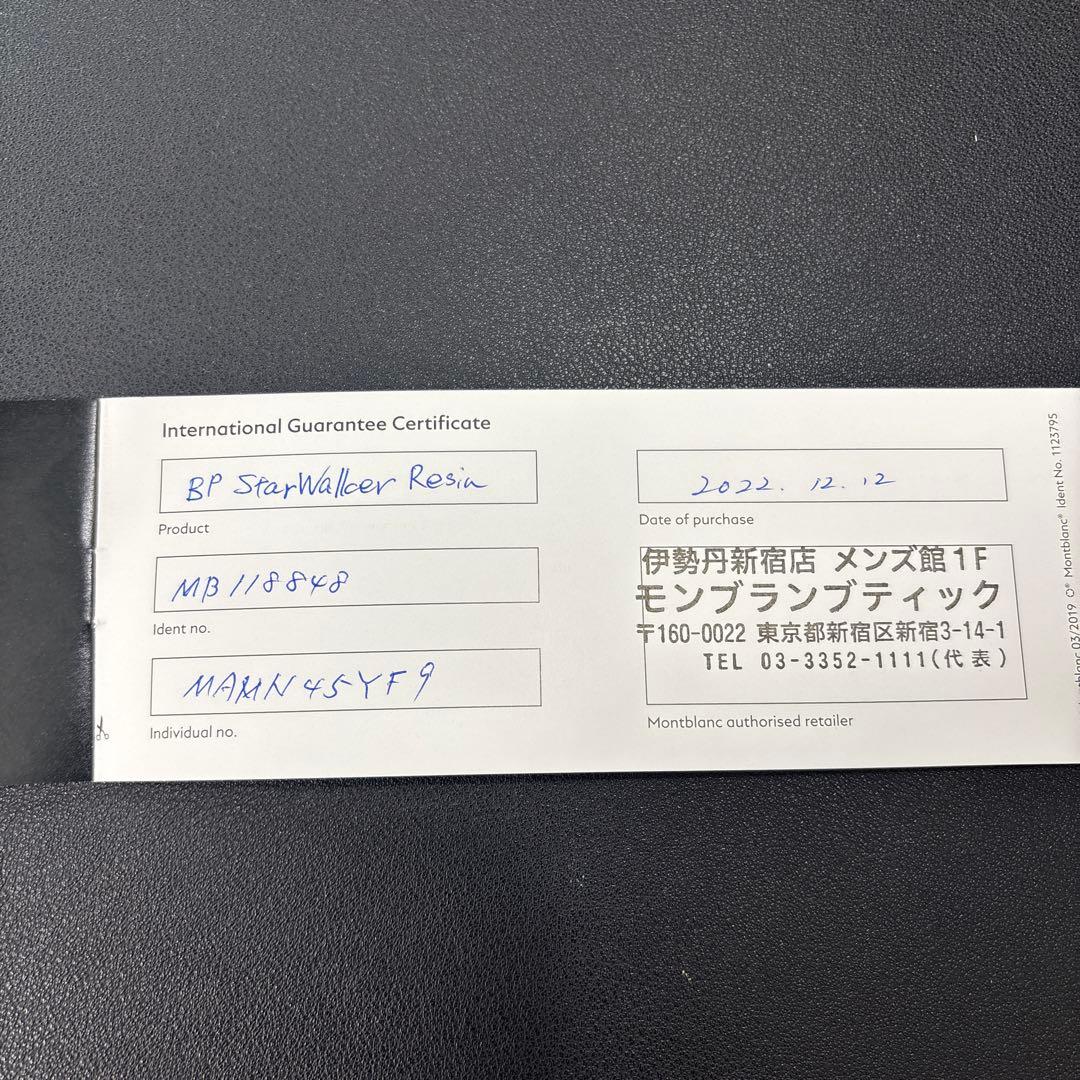 International Guarantee Certificate
BP StarWalker Resin
Product
MB118848
Ident no.
MAMN45YF9
Individual no.
2022. 12. 12
Date of purchase
伊勢丹新宿店 メンズ館1F
モンブランブティック
〒160-0022 東京都新宿区新宿3-14-1
TEL 03-3352-1111(代表)
Montblanc authorised retailer
03/2019 O® Montblanc® Ident No. 1123795